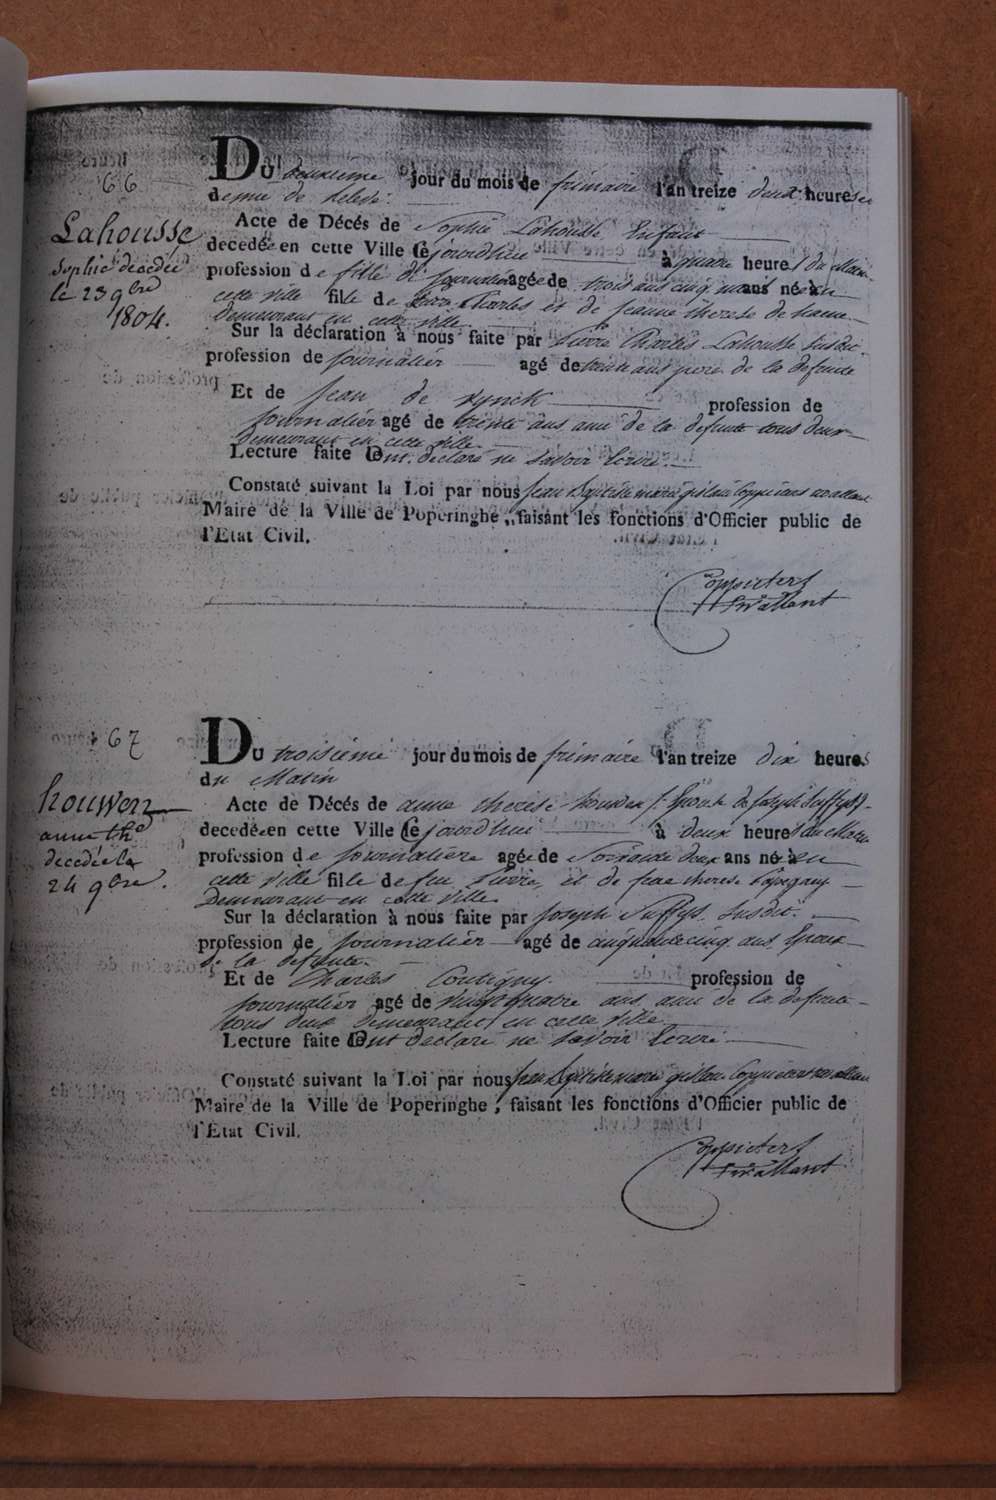 66
Lahousse
Sophie decedée
le 23 9bre
1804.
Du deuxieme jour du mois de frimaire l'an treize deux heures et
demie de relevé.
Acte de Décés de Sophie Lahousse Enfant
decedée en cette Ville Ce jourdhui à quatre heures du Matin
profession de fille de journalier agée de trois ans cinq mois ans né à en
cette ville fille de Pierre Charles et de Jeanne therese de
demeurant en cette ville
Sur la déclaration à nous faite par Pierre Charles Lahousse susdit.
profession de journalier agé de trente ans pere de la defunte
Et de Jean de rynck profession de
journalier agé de trente ans ami de la defunte tous deux
demeurant en cette ville
Lecture faite ont declaré ne savoir Ecrire.
Constaté suivant la Loi par nous Jean Baptiste marie gislain Coppieters
Maire de la Ville de Poperinghe, faisant les fonctions d'Officier public de
l'Etat Civil.
Coppieters
Stwallant
67
houwen
anne the
decedée le
24 9bre.
Du troisieme jour du mois de frimaire l'an treize dix heures
du Matin
Acte de Décés de anne therese Epouse de Joseph Suffys
decedée en cette Ville Ce jourdhui à deux heures du Matin
profession de journaliere agée de Soixante deux ans né à en
cette ville fille de feu Pierre, et de feue therese
Demeurant en cette ville
Sur la déclaration à nous faite par Joseph Suffys Susdit.
profession de journalier agé de cinquante cinq ans Epoux
de la defunte.
Et de Charles Coutigny profession de
journalier agé de vingt quatre ans ami de la defunte
tous deux Demeurant en cette ville
Lecture faite ont declaré ne savoir Ecrire
Constaté suivant la Loi par nous Jean Baptiste marie gislain Coppieters
Maire de la Ville de Poperinghe, faisant les fonctions d'Officier public de
l'Etat Civil.
Coppieters
Stwallant